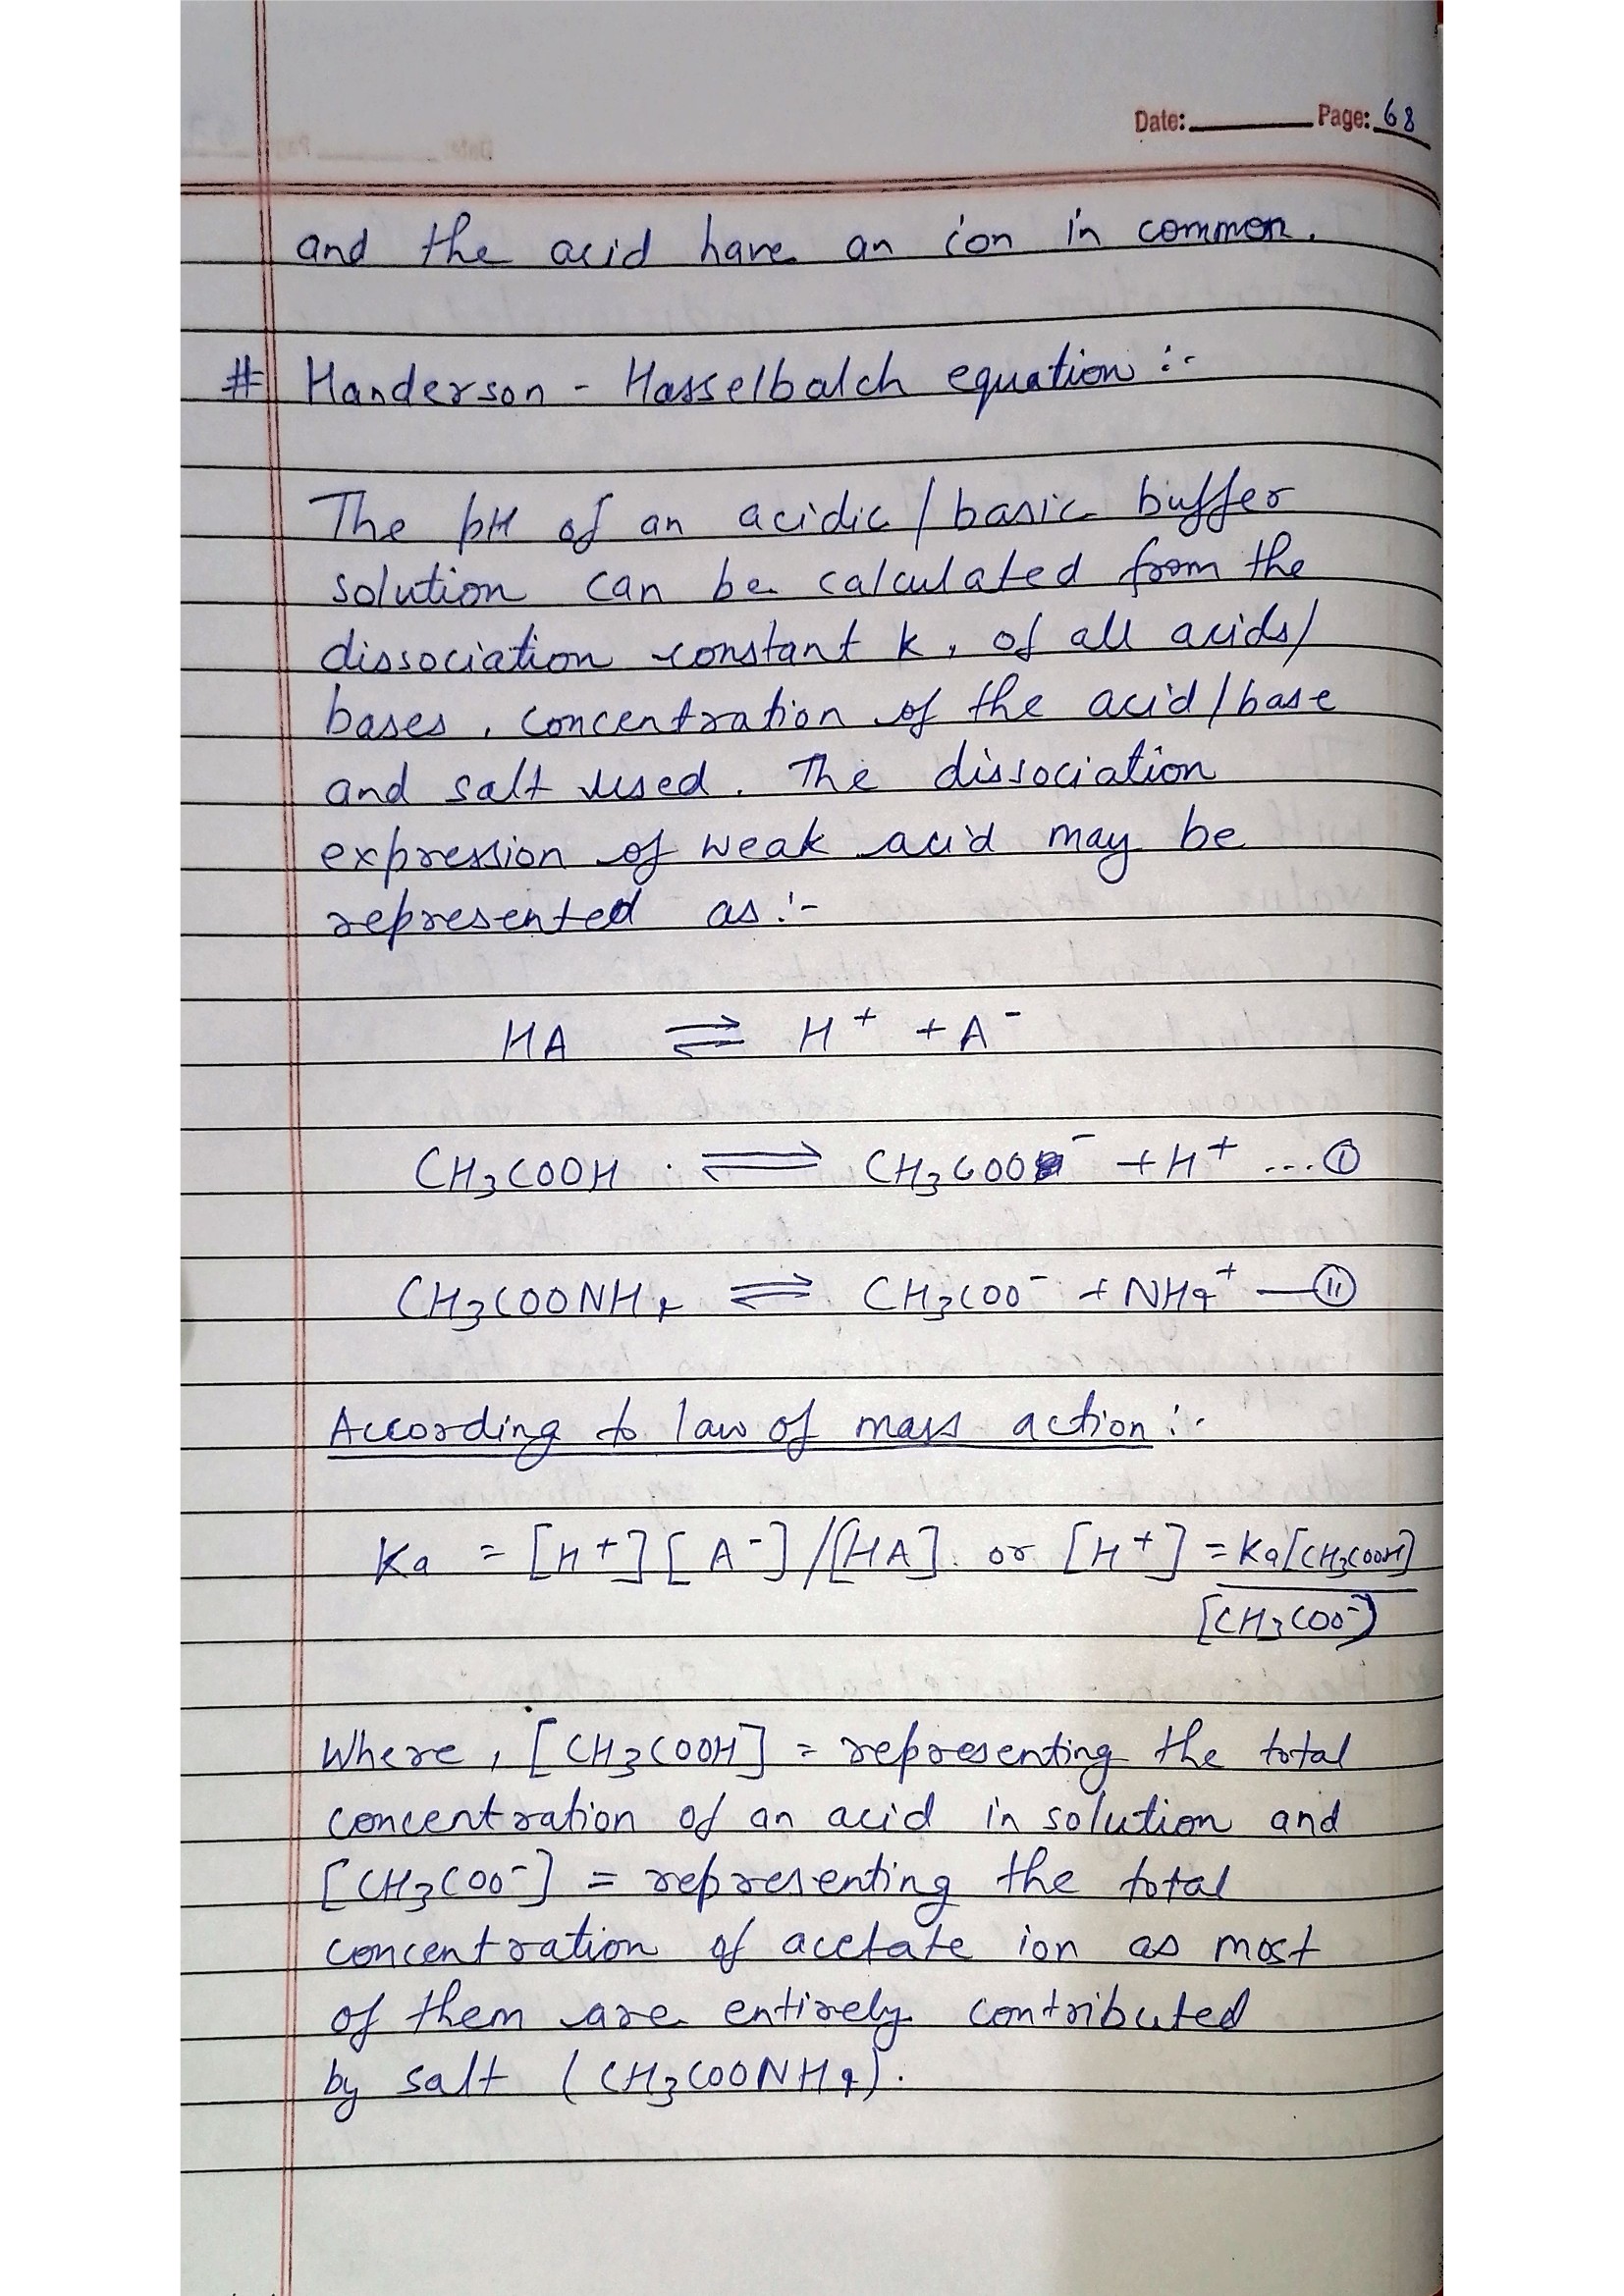 Date: Page: 68
and the acid have an ion in common.
# Handerson - Hasselbalch equation :-
The pH of an acidic / basic buffer
solution can be calculated from the
dissociation constant k, of all acids/
bases, concentration of the acid / base
and salt used. The dissociation
expression of weak acid may be
represented as :-
HA ⇌ H⁺ + A⁻
CH₃COOH ⇌ CH₃COO⁻ + H⁺ ... ①
CH₃COONH₄ ⇌ CH₃COO⁻ + NH₄⁺ — ⑪
According to law of mass action :-
Ka = [H⁺][A⁻]/[HA] or [H⁺] = Ka[CH₃COOH]
[CH₃COO⁻]
Where, [CH₃COOH] = representing the total
concentration of an acid in solution and
[CH₃COO⁻] = representing the total
concentration of acetate ion as most
of them are entirely contributed
by salt (CH₃COONH₄).